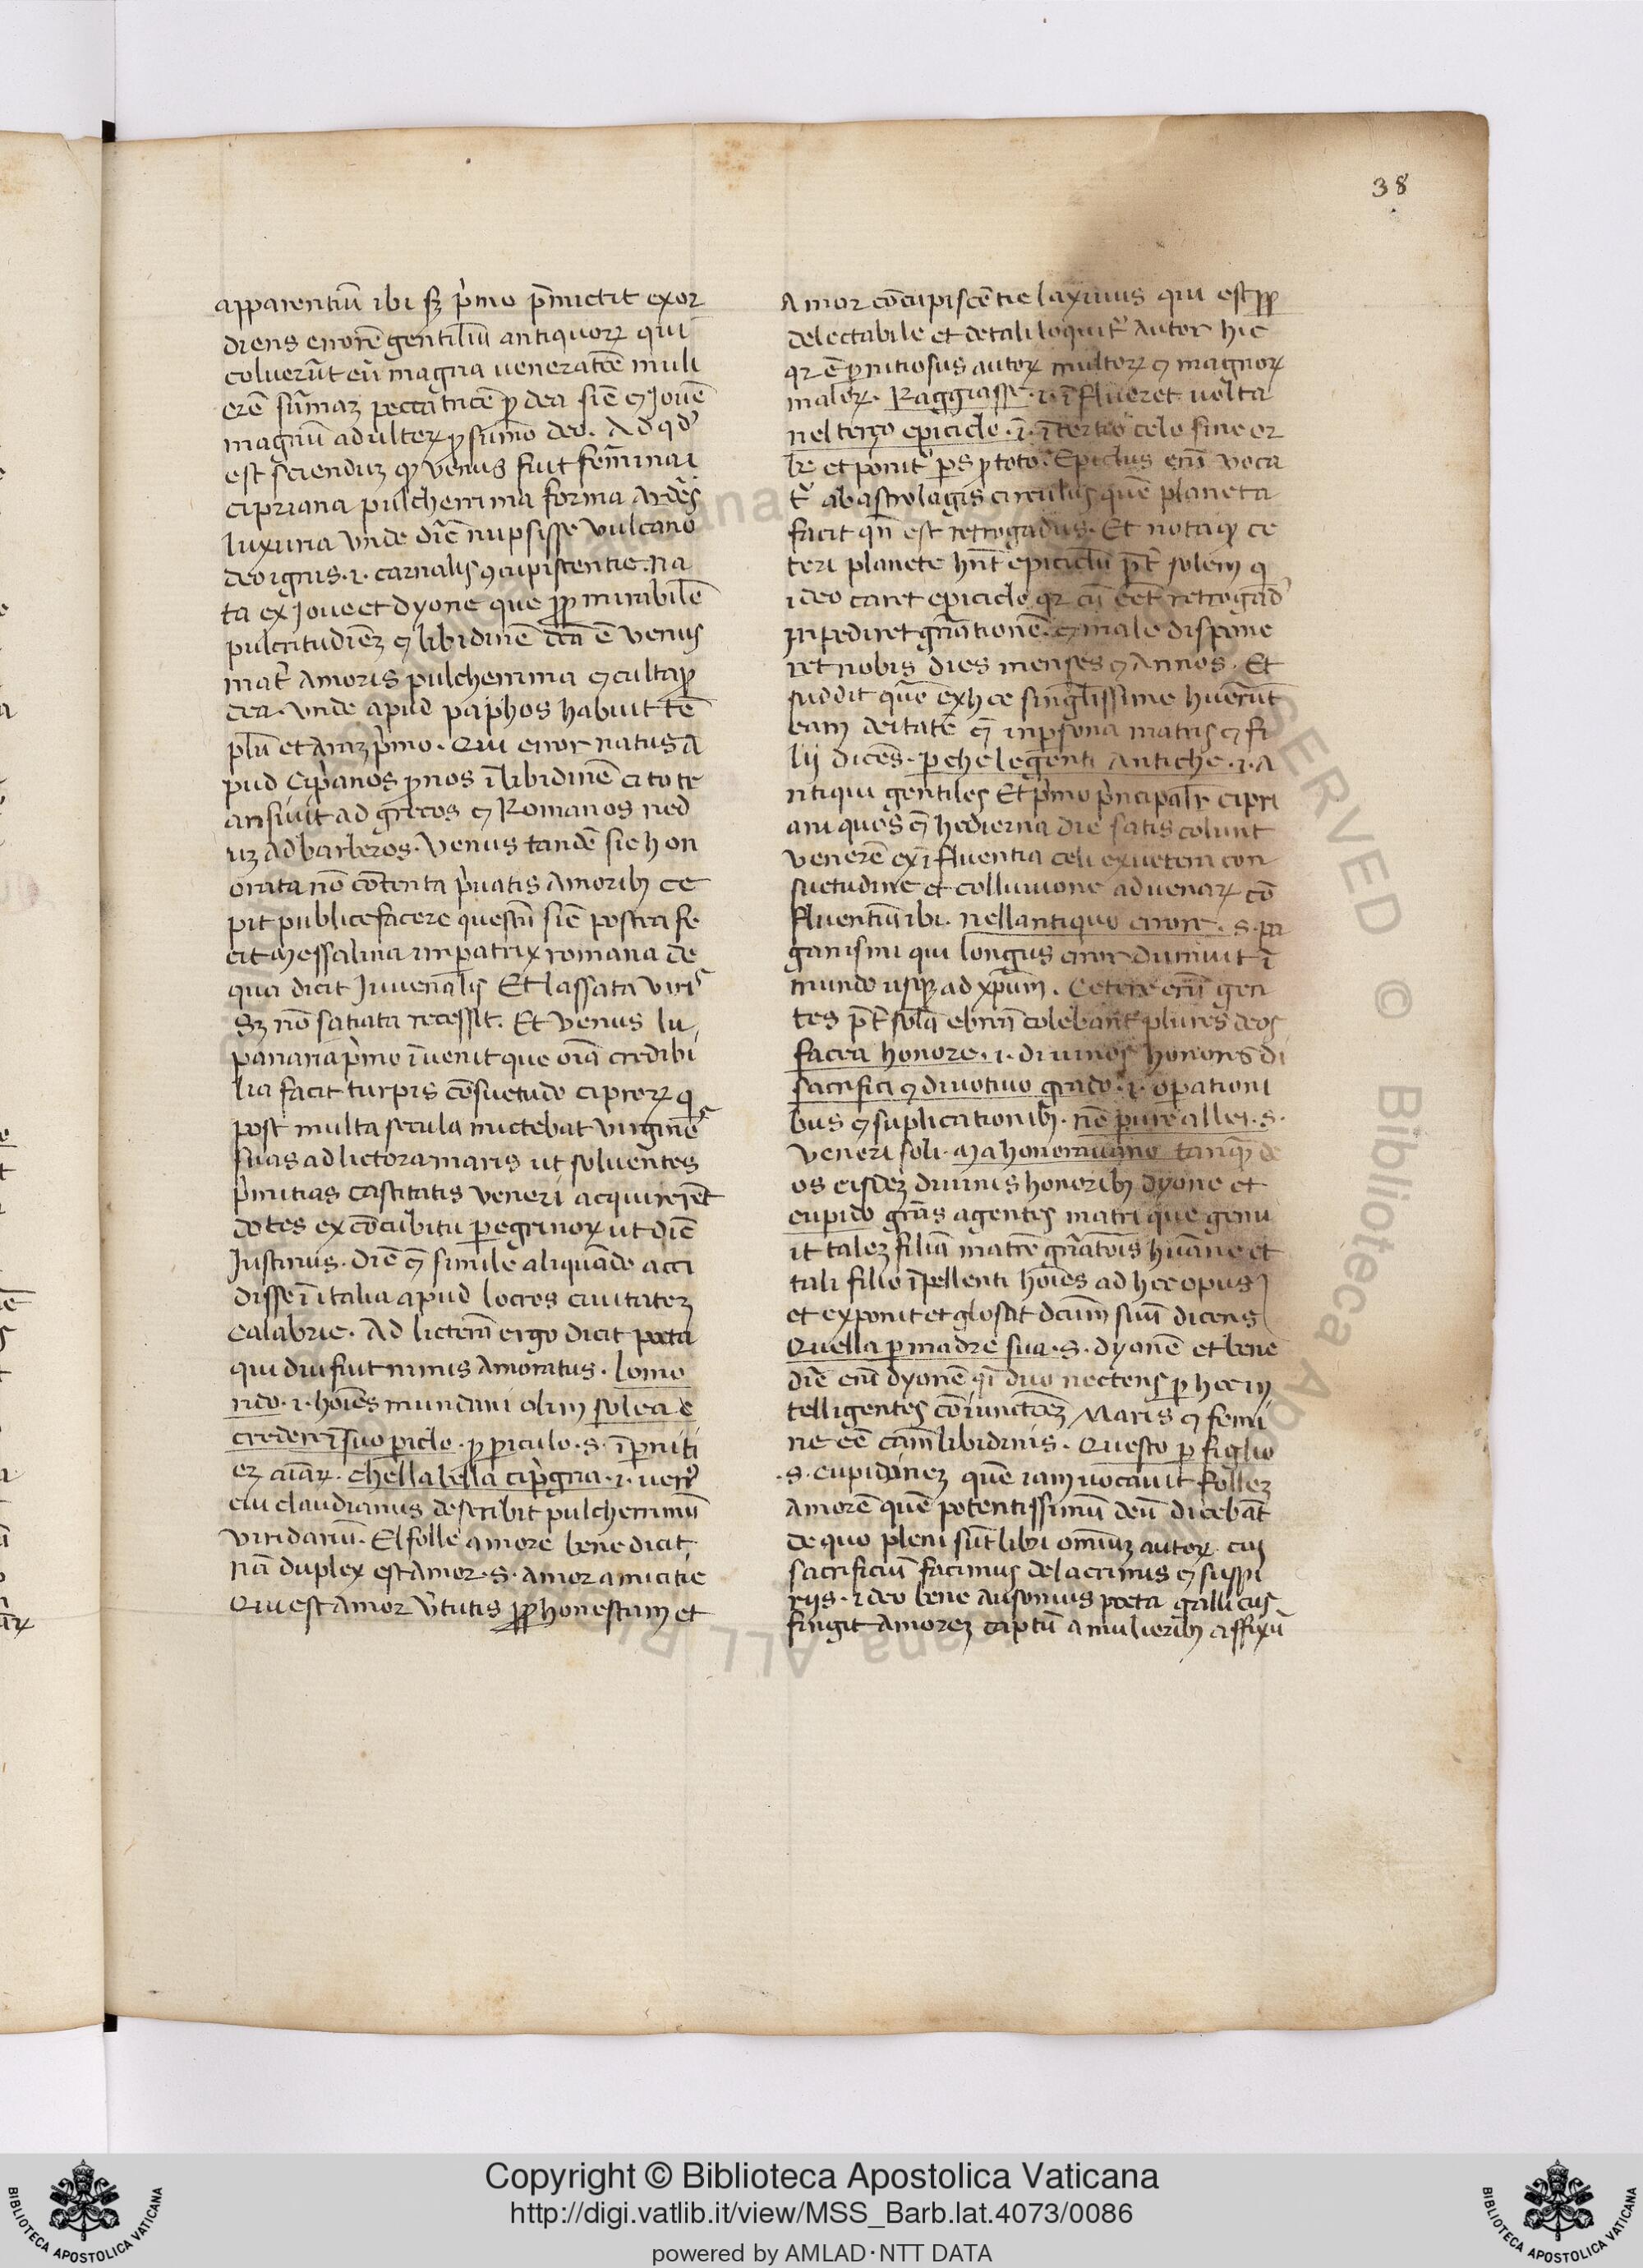 38
apparentiũ ibi sꝫ p̾mo p̃mictit exor
diens errorẽ gentiliũ antiquoꝝ qui
coluerũt cũ magna ueneratõe muli
erẽ sũmaꝫ peccatricẽ ꝓ dea siẽ ⁊ Jouẽ
magnũ adulteꝝ ꝓ sũmo deo. Ad qd̾
est sciendũꝫ ꝙ venus fuit femina
cipriana pulcherrima forma ardẽs
luxuria vnde dr̃e nupsisse vulcano
deo ignis .i. carnalis ꝯcupiscentie. na
ta ex Joue et dyone que ꝓp mirabilẽ
pulcritudiẽꝫ ⁊ libidinẽ dcã ẽ venus
mat̾ amoris pulcherrima ⁊ culta ꝓ
dea. vnde apud paphos habuit tẽ
plũ et aram p̾mo. Qui error natus a
pud Cip̾anos ꝓnos ĩ libidinẽ cito tr
ansiuit ad grecos ⁊ Romanos ned
uꝫ ad barberos. Venus tandẽ sic hon
orata nõ cõtenta p̾uatis amoribꝫ ce
pit publice facere questũ siẽ postea fe
cit Messalina imꝑatrix romana de
qua dicit Iuuenalis Et lassata viris
Sꝫ nõ satiata recessit. Et Venus lu
panaria p̾mo ĩuenit que oĩa credibi
lia facit turpis cõsuetudo cipreoꝝ q
post multa secula mictebat uirginẽs
suas ad lictora maris ut soluentes
p̾mitias castitatis veneri acquirerẽt
dotes ex cõcubitu ꝑegrinoꝝ ut dr̃e
Justinus. Dr̃e ⁊ simile aliquãdo acci
disse ĩ italia apud locres ciuitateꝫ
Calabrie. Ad licterã ergo dicit poeta
qui diu fuit nimis amoratus. lo mo
ndo .i. hoĩes mundani olim solea e
credere ĩ suo ꝑiclo. ꝓ ꝑiculo .s. ĩ ꝑniti
eꝫ aĩaꝝ. che lla bella cip̾gna .i. uen9
cui claudianus describit pulcherrimũ
viridariũ. El folle amore bene dicit
nã duplex est amor .s. amor amicitie
Qui est amor v̾tutis ꝓp honestam et
Amor cõcupiscẽtie laxiuus qui est ꝓp
delectabile et de tali loquit̾ autor hic
qr ẽ ꝑnitiosus autoꝝ multoꝝ ⁊ magnoꝝ
maloꝝ. Raggiasse .i. ĩflueret uolta
nel terço epiciclo .i. ĩ tertio celo siue or
be et ponit̾ ps ꝓ toto. Epiclus enĩ voca
t̾ ab astrolagis circulus quẽ planeta
facit qñ est retrogradus. Et nota ꝙ ce
teri planete hñt epiciclũ p̃t solem q
ideo caret epiciclo qr cũ eẽt retrogad9
inpediret gñationẽ ⁊ male dispone
ret nobis dies menses ⁊ annos. Et
suddit quẽ ex hoc singlissime huerũt
eam deitatẽ ⁊ in ꝑsona matris ⁊ fi
lij dicẽs. ꝑ che le genti antiche .i. a
ntiqui gentiles Et p̾mo p̾ncipalr cipri
ani quos ⁊ hodierna die satis colunt
venerẽ ex ĩfluentia celi ex uetera con
suetudine et colluuione aduenaꝝ cõ
fluentiũ ibi. nell antiquo errore .s. pa
ganismi qui longus error durauit ĩ
mundo usqꝫ ad xp̃um. Cetere enĩ gen
tes p̃t solã ebreã colebant plures deos
facea honore .i. diuinos honores di
sacrifici ⁊ di uotiuo grido .i. oꝑationi
bus ⁊ suplicationibꝫ. nõ pure allei .s.
Veneri soli. Ma honorauano tanqꝫ de
os eisdeꝫ diuinis honoribꝫ dyone et
cupido grãs agentes matri que genu
it taleꝫ filiã matrẽ gñatõis huãne et
tali filio ĩpellenti hoĩes ad hoc opus
et exponit et glosat dcũm suũ dicens
Quella ꝑ madre sua .s. dyonẽ et bene
dr̃e enĩ dyonẽ q̃i duo nectens ꝑ hoc in
telligentes cõiunctõeꝫ Maris ⁊ femi
ne eẽ cãm libidinis. Questo ꝑ figlio
.s. cupidineꝫ quẽ iam uocauit folleꝫ
amorẽ quẽ potentissimũ deũ dicebãt
de quo pleni sũt libri omniũꝫ autoꝝ cui
sacrificiũ facimus de lacrimis ⁊ suspi
rijs. ideo bene Ausonius poeta gallicus
fingit amoreꝫ captũ a mulieribꝫ affixũ
Copyright © Biblioteca Apostolica Vaticana
http://digi.vatlib.it/view/MSS_Barb.lat.4073/0086
powered by AMLAD·NTT DATA
BIBLIOTECA APOSTOLICA VATICANA
BIBLIOTECA APOSTOLICA VATICANA